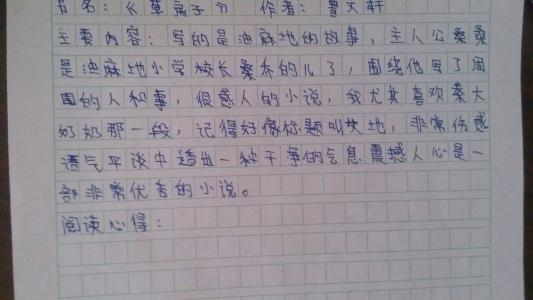 书名：《草房子》 作者：曹文轩
主要内容：写的是油麻地的故事，主人公桑桑
是油麻地小学校长桑乔的儿子，围绕他写了周
围的人和事，很感人的小说，我尤其喜欢秦大
奶奶那一段，记得好像标题叫艾地，非常伤感
语气平谈中透出一种干净的气息震撼人心是一
部非常优秀的小说。
阅读心得：